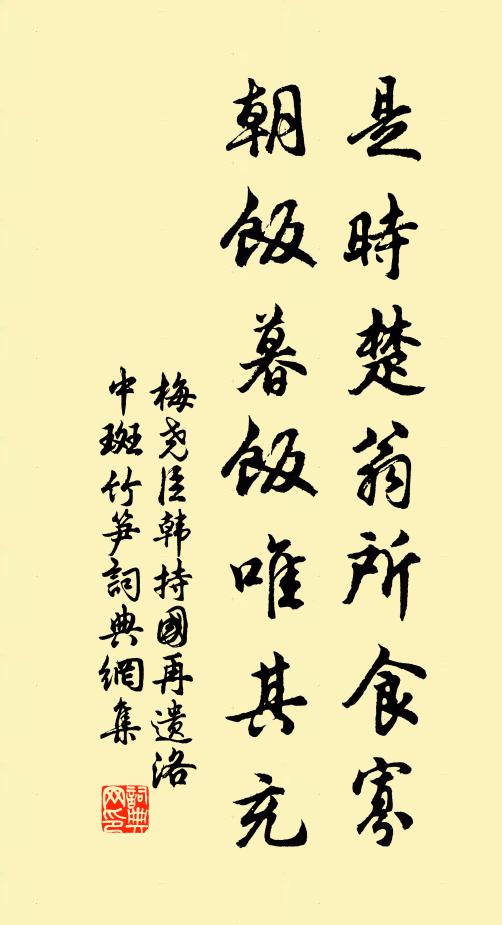 是時楚翁所食寡
朝飯暮飯唯其充
梅堯臣韩持國再遺洛
中斑竹笋詞典網集
詞典
网印